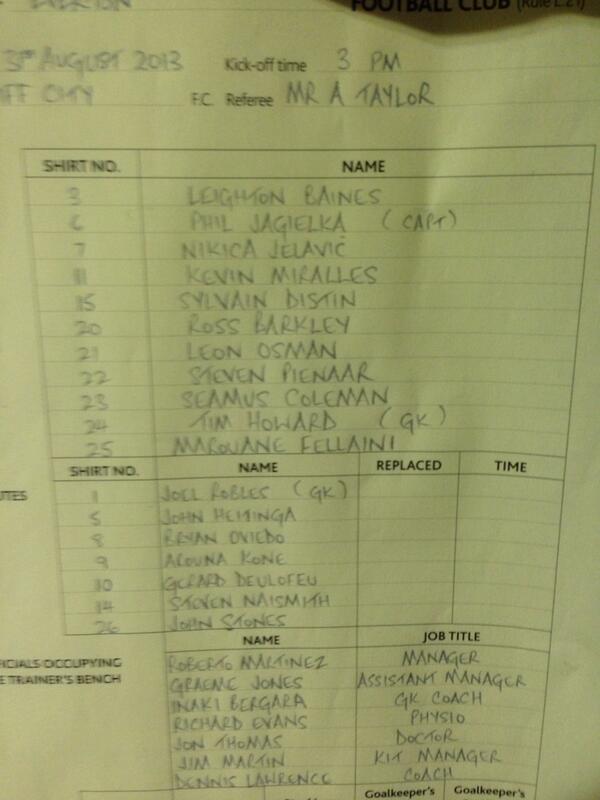 FOOTBALL CLUB (Rule L.21)
AUGUST 2013 Kick-off time 3 PM
CITY F.C. Referee MR A TAYLOR
SHIRT NO. NAME
3 LEIGHTON BAINES
6 PHIL JAGIELKA (CAPT)
7 NIKICA JELAVIĆ
11 KEVIN MIRALLES
15 SYLVAIN DISTIN
20 ROSS BARKLEY
21 LEON OSMAN
22 STEVEN PIENAAR
23 SEAMUS COLEMAN
24 TIM HOWARD (GK)
25 MAROUANE FELLAINI
SHIRT NO. NAME REPLACED TIME
1 JOEL ROBLES (GK)
5 JOHN HEITINGA
8 BRYAN OVIEDO
9 AROUNA KONE
10 GERARD DEULOFEU
14 STEVEN NAISMITH
26 JOHN STONES
NAME JOB TITLE
ROBERTO MARTINEZ MANAGER
GRAEME JONES ASSISTANT MANAGER
TRAINER'S BENCH
INAKI BERGARA GK COACH
RICHARD EVANS PHYSIO
JON THOMAS DOCTOR
JIM MARTIN KIT MANAGER
DENNIS LAWRENCE COACH
Goalkeeper's Goalkeeper's